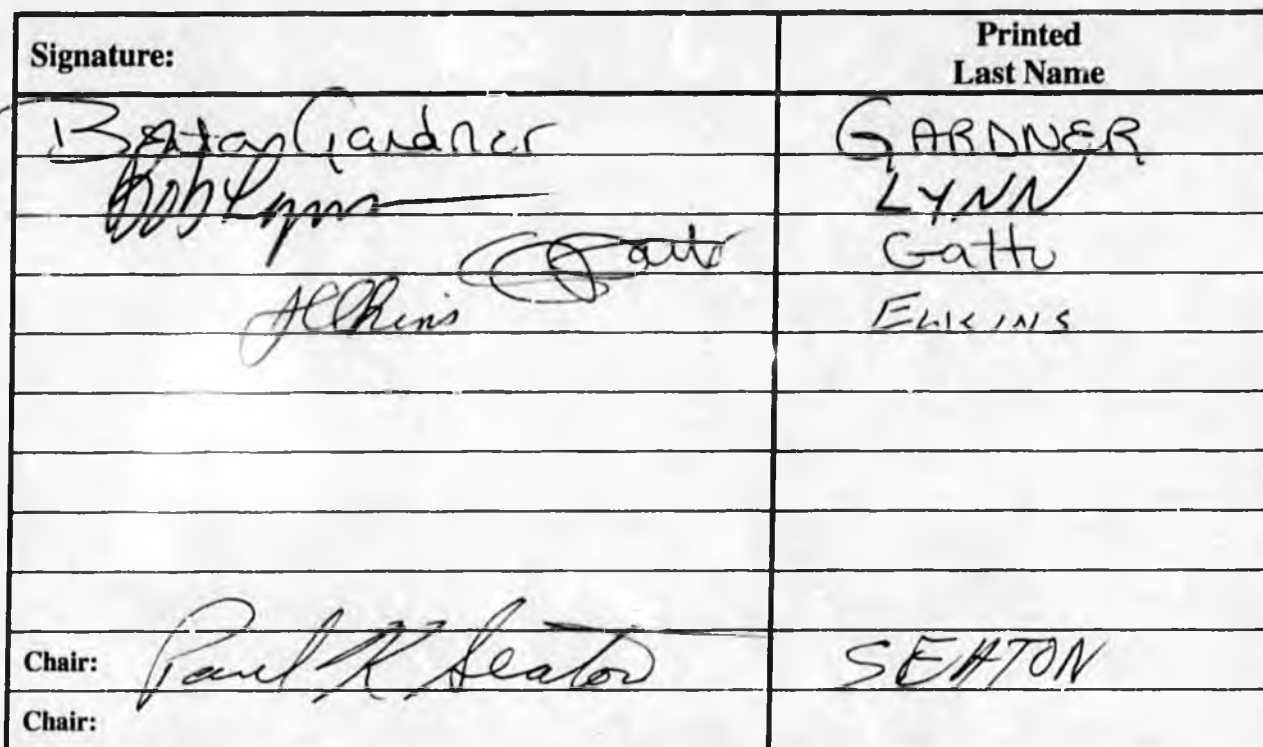 Signature: Printed Last Name
Berta Gardner GARDNER
Bob Lynn LYNN
Gatto Gatto
Elkins ELKINS
Chair: Paul K Seaton SEATON
Chair: